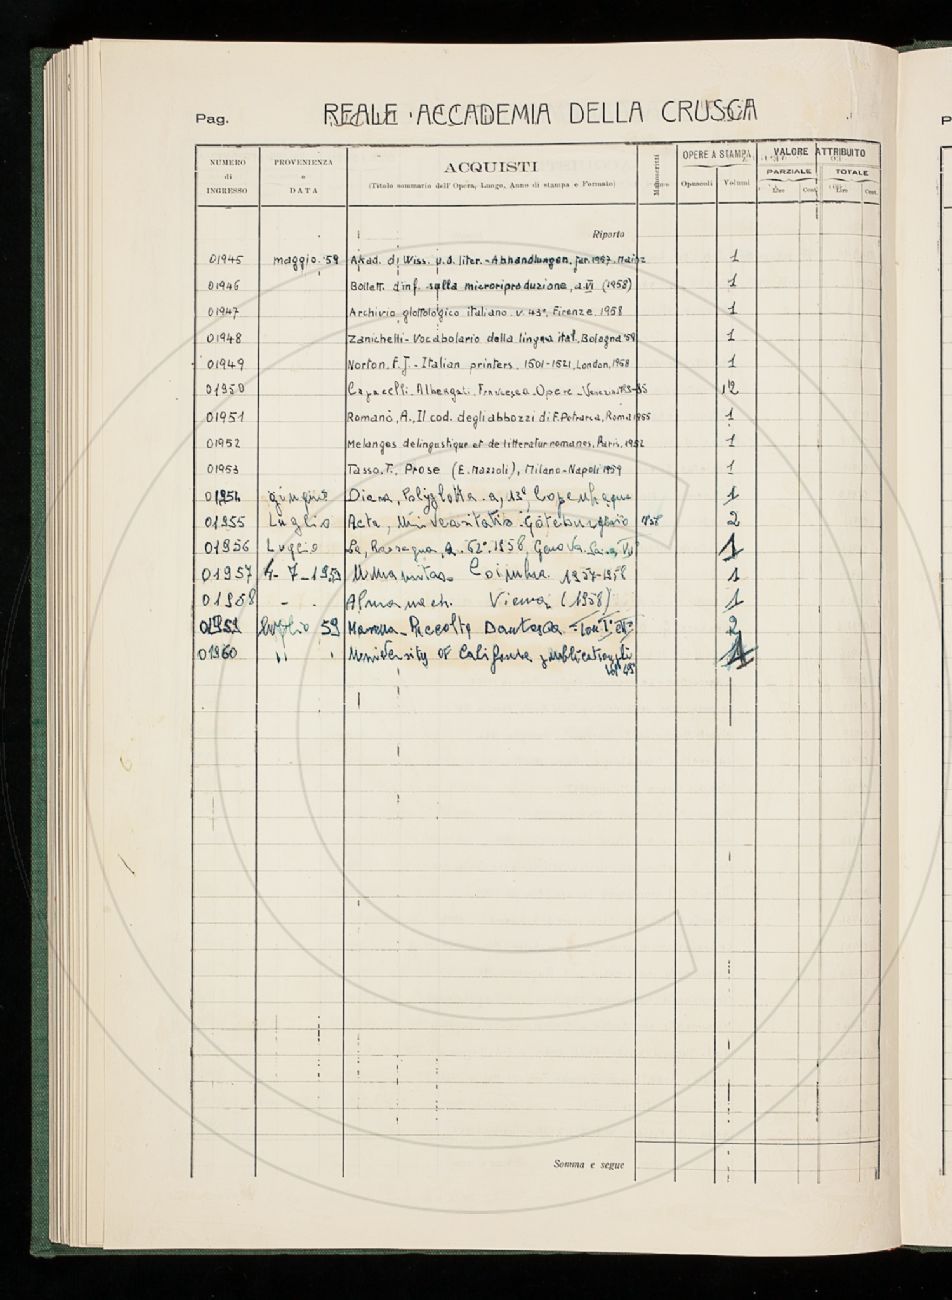 Pag. REALE ACCADEMIA DELLA CRUSCA
NUMERO di INGRESSO PROVENIENZA e DATA ACQUISTI (Titolo sommario dell'Opera, Luogo, Anno di stampa e Formato) OPERE A STAMPA Opuscoli Volumi VALORE ATTRIBUITO PARZIALE Lire Cent. TOTALE Lire Cent.
Riporto
01945 maggio. 59 Akad. d. Wiss. u. d. liter. - Abhandlungen, 1957. Mainz 1
01946 Bollett. d'inf. sulla microriproduzione, a. VI (1958) 1
01947 Archivio glottologico italiano. v. 43°, Firenze, 1958 1
01948 Zanichelli - Vocabolario della lingua ital., Bologna '59 1
01949 Norton. F. J. - Italian printers. 1501-1521, London, 1958 1
01950 Capacelli. Albergati. Francesco. Opere - 12
01951 Romanò, A., Il cod. degli abbozzi di F. Petrarca, Roma 1955 1
01952 Melanges de linguistique et de litterature romanes, Paris, 1952 1
01953 Tasso. T., Prose (E. Mazzoli), Milano-Napoli 1959 1
01954 giugno a, 13° Copenhague 1
01955 Luglio Acta, Universitatis 2
01956 Luglio La, Rassegna, a. 62°. 1958, Genova. 1
01957 4-7-1959 Humanitas. Coimbra. 1957-1958 1
01958 - . Almanach. Vienna (1958) 1
01959 luglio 59 2
01960 " ' University of California 1
vol 45
Somma e segue